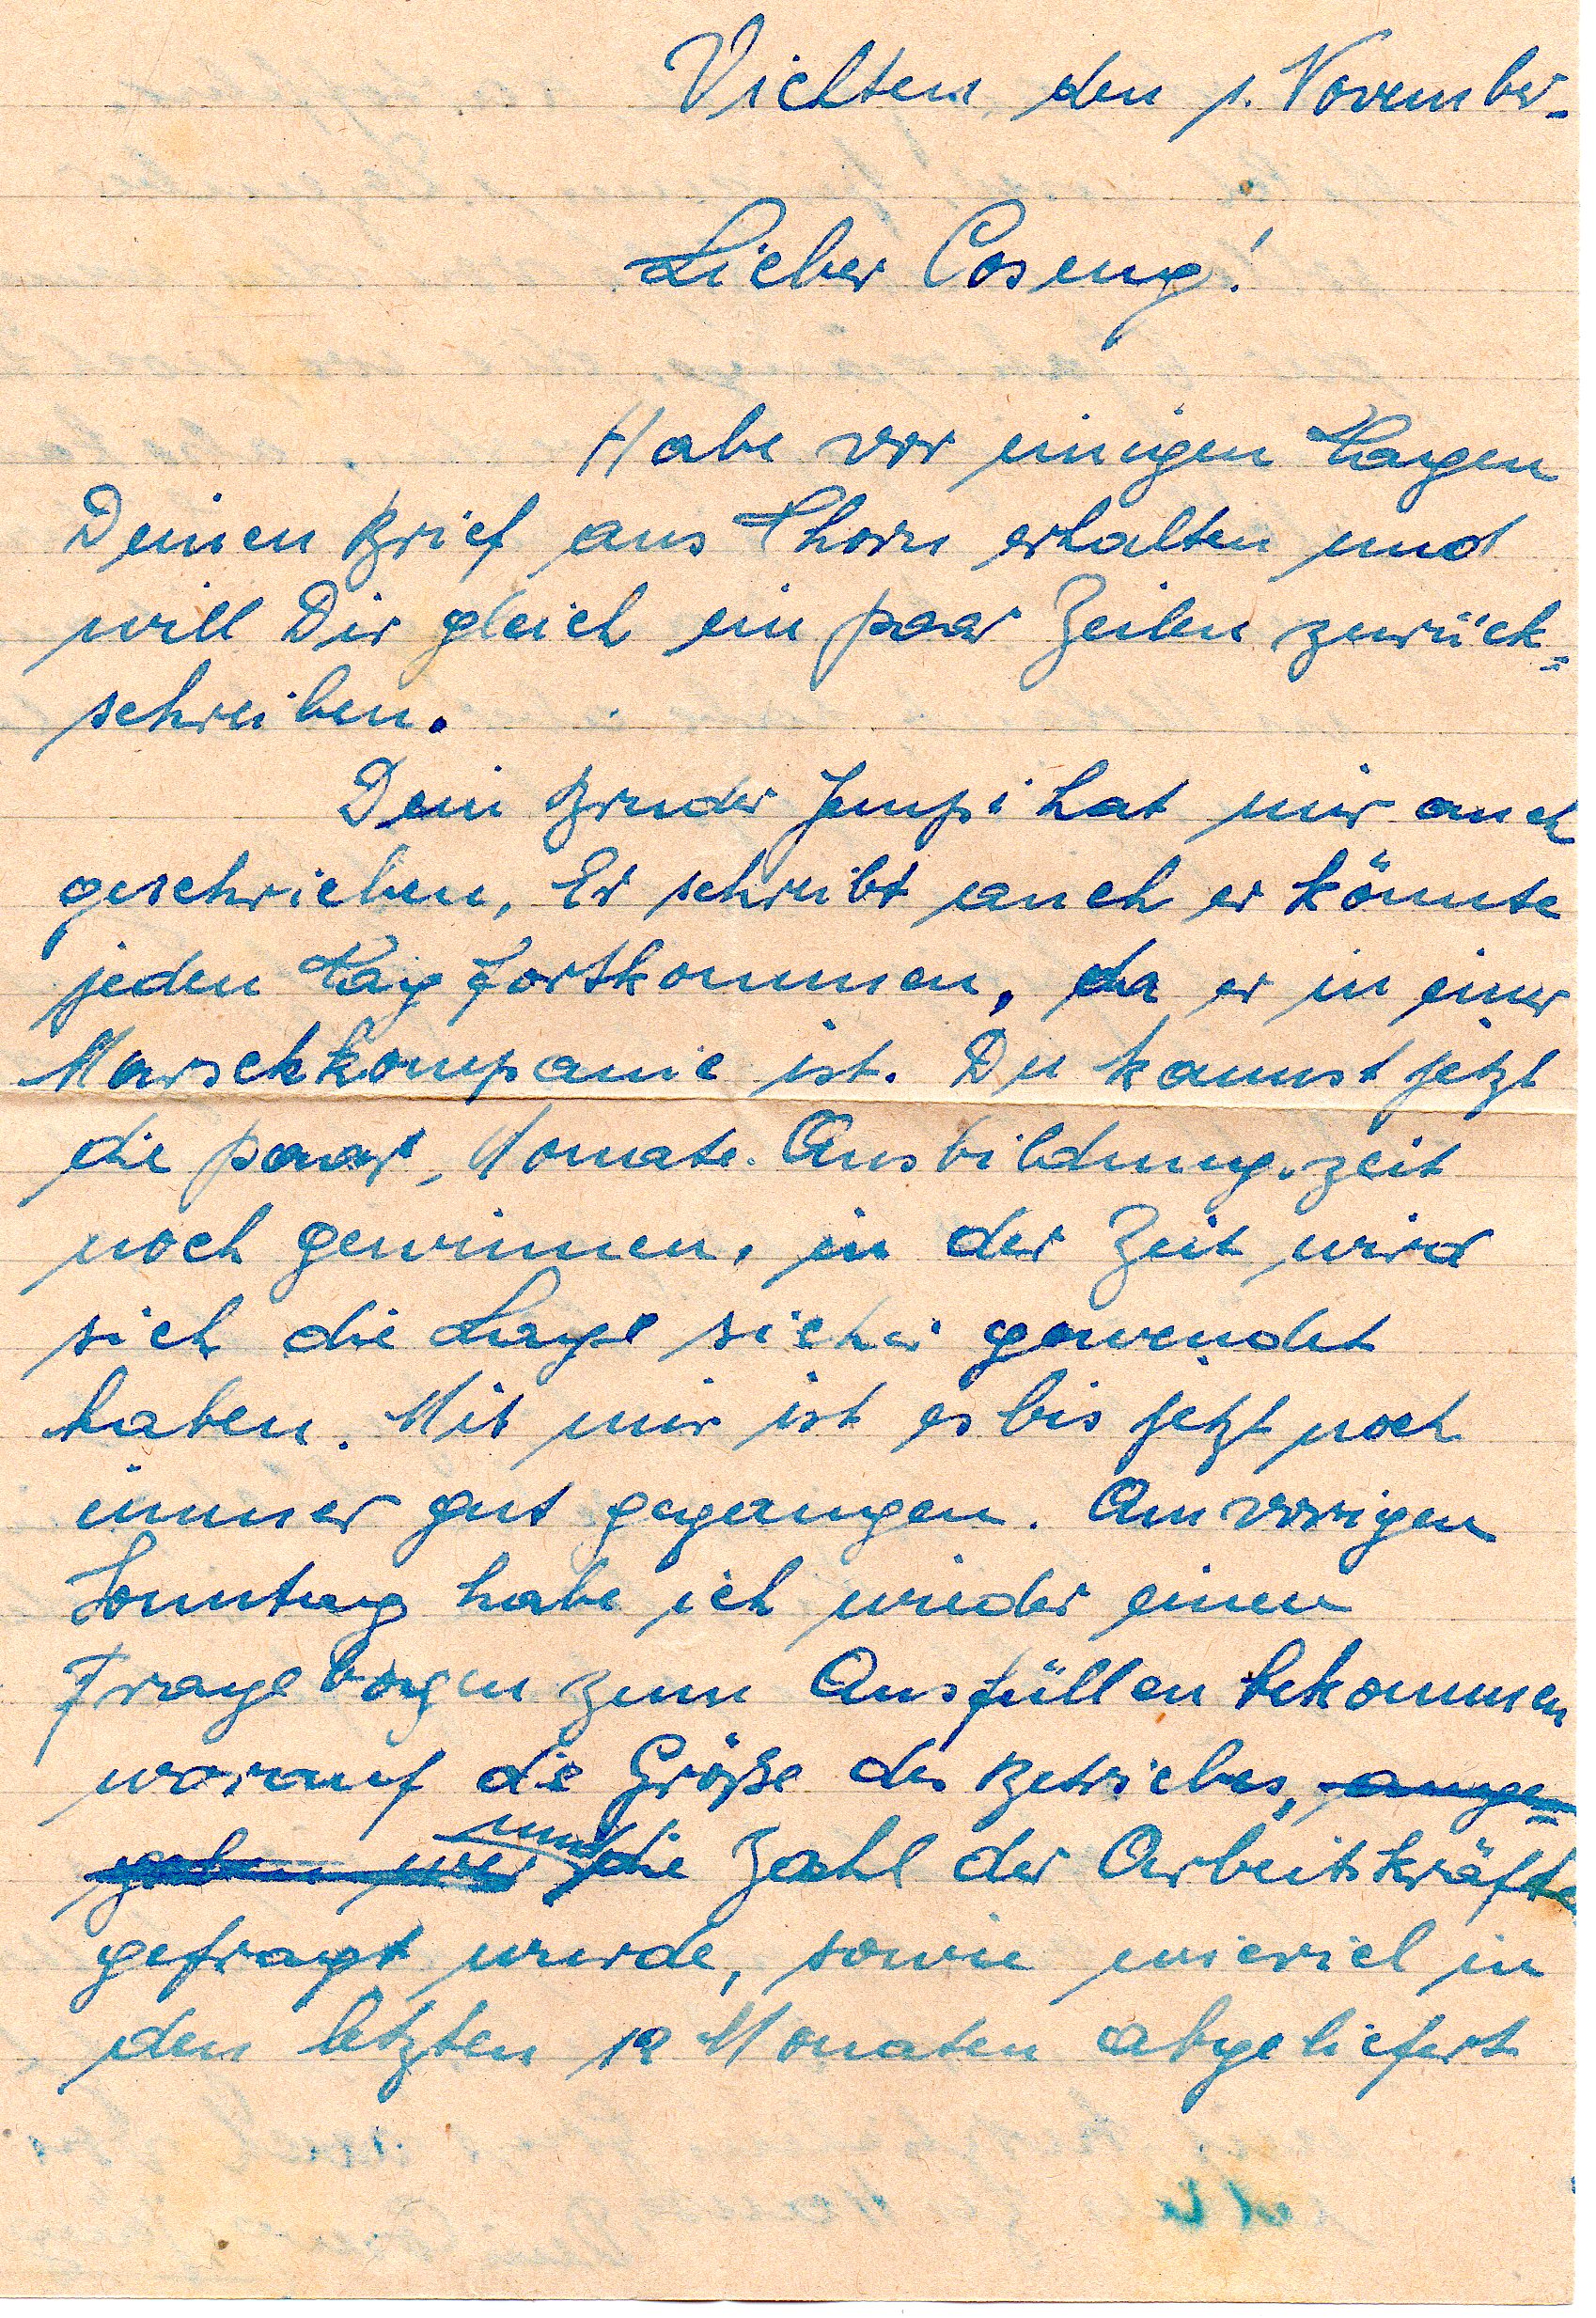 Vichten den 1. November.
Lieber Coseng!
Habe vor einigen Tagen
Deinen Brief aus Thorn erhalten und
will Dir gleich ein paar Zeilen zurück=
schreiben.
Dein Bruder Jempi hat mir auch
geschrieben, Er schreibt auch er könnte
jeden Tag fortkommen, da er in einer
Marschkompanie ist. Du kannst jetzt
die paar Monate Ausbildungszeit
noch gewinnen, in der Zeit wird
sich die Lage sicher gewendet
haben. Mit mir ist es bis jetzt noch
immer gut gegangen. Am vorigen
Sonntag habe ich wieder einen
Fragebogen zum Ausfüllen bekommen
worauf die Größe des Betriebes, ange=
geben wer und die Zahl der Arbeitskräfte
gefragt wurde, sowie wieviel in
den letzten 12 Monaten abgeliefert